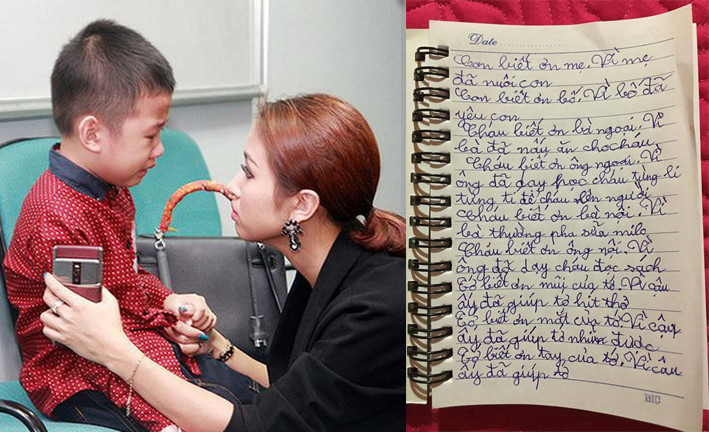 Date
Con biết ơn mẹ. Vì mẹ
đã nuôi con
Con biết ơn bố. Vì bố đã
yêu con
Cháu biết ơn bà ngoại. Vì
bà đã nấu ăn cho cháu
Cháu biết ơn ông ngoại. Vì
ông đã dạy học cháu từng li
từng tí để cháu lên người
Cháu biết ơn bà nội. Vì
bà thường pha sữa milo
Cháu biết ơn ông nội. Vì
ông đã dạy cháu đọc sách
Tớ biết ơn mũi của tớ. Vì cậu
ấy đã giúp tớ hít thở
Tớ biết ơn mắt của tớ. Vì cậu
ấy đã giúp tớ nhìn được
Tớ biết ơn tay của tớ. Vì cậu
ấy đã giúp tớ